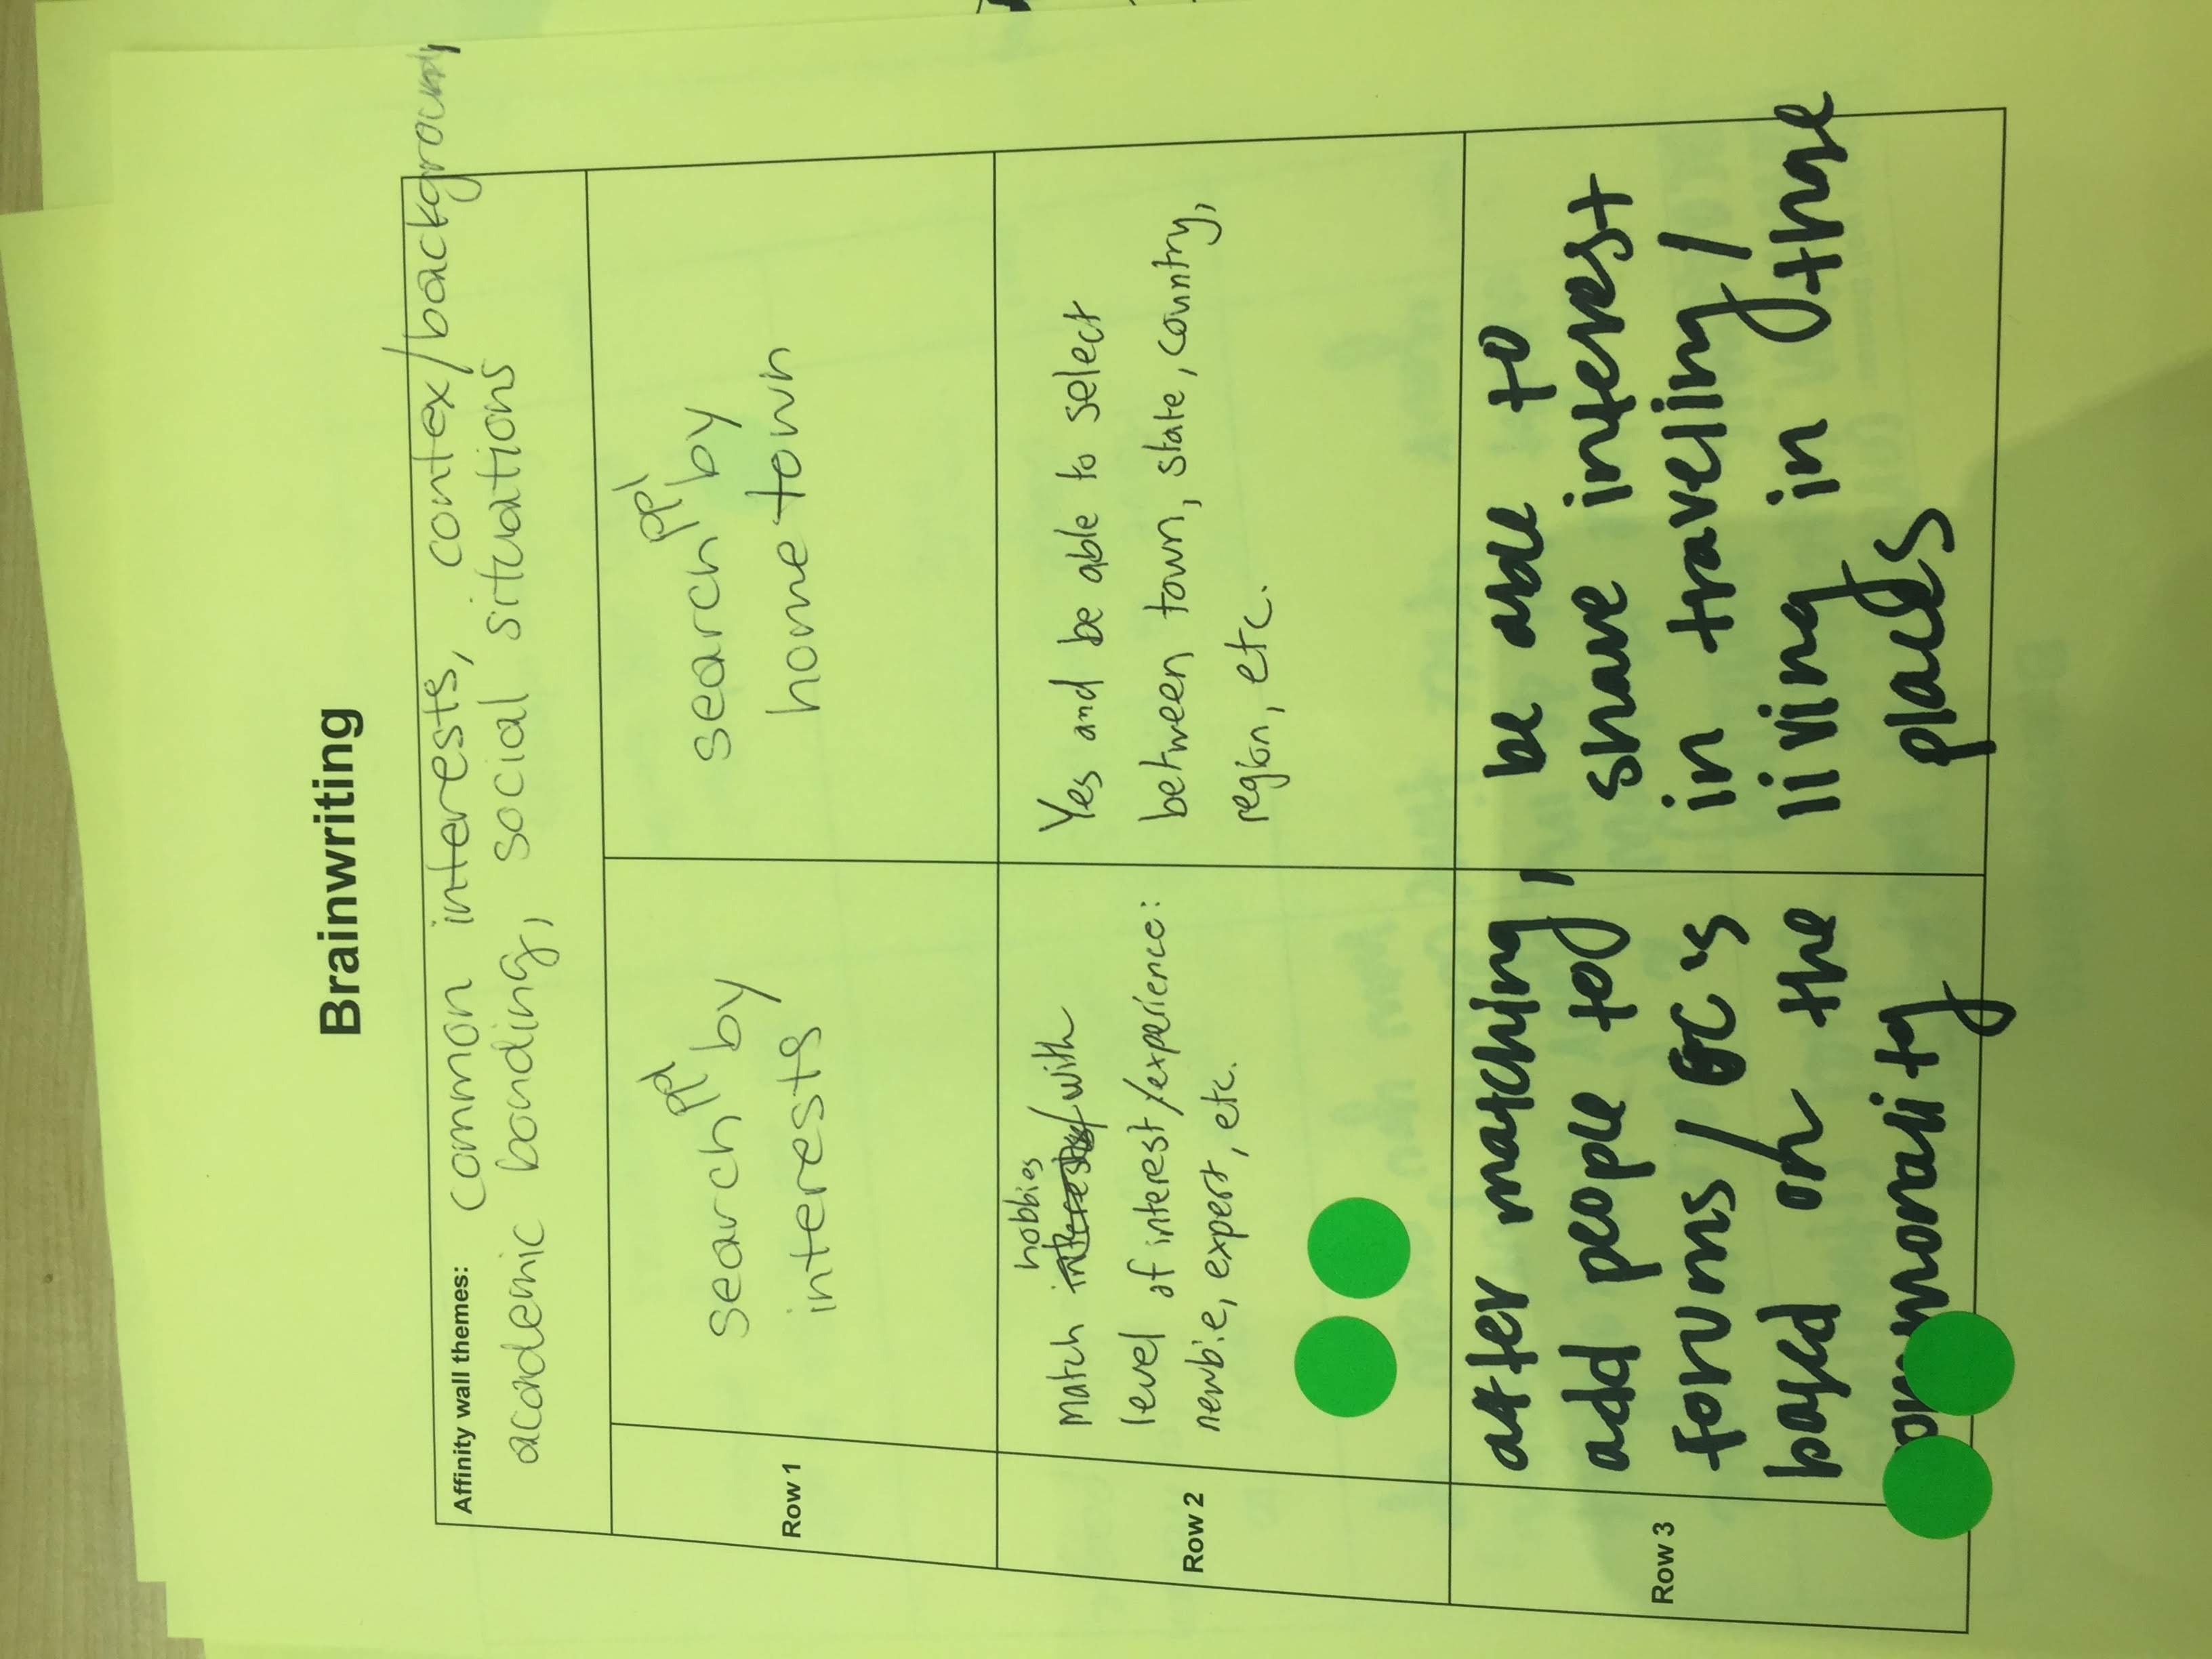 Brainwriting
Affinity wall themes: common interests, contex/background,
academic bonding, social situations
Row 1
search ppl by
interests
search ppl by
hometown
Row 2
hobbies
Match interests/with
level of interest/experience:
newbie, expert, etc.
Yes and be able to select
between town, state, country,
region, etc.
Row 3
after matching,
add people to
forums/GC's
based on the
be able to
share interest
in traveling/
living in those
places